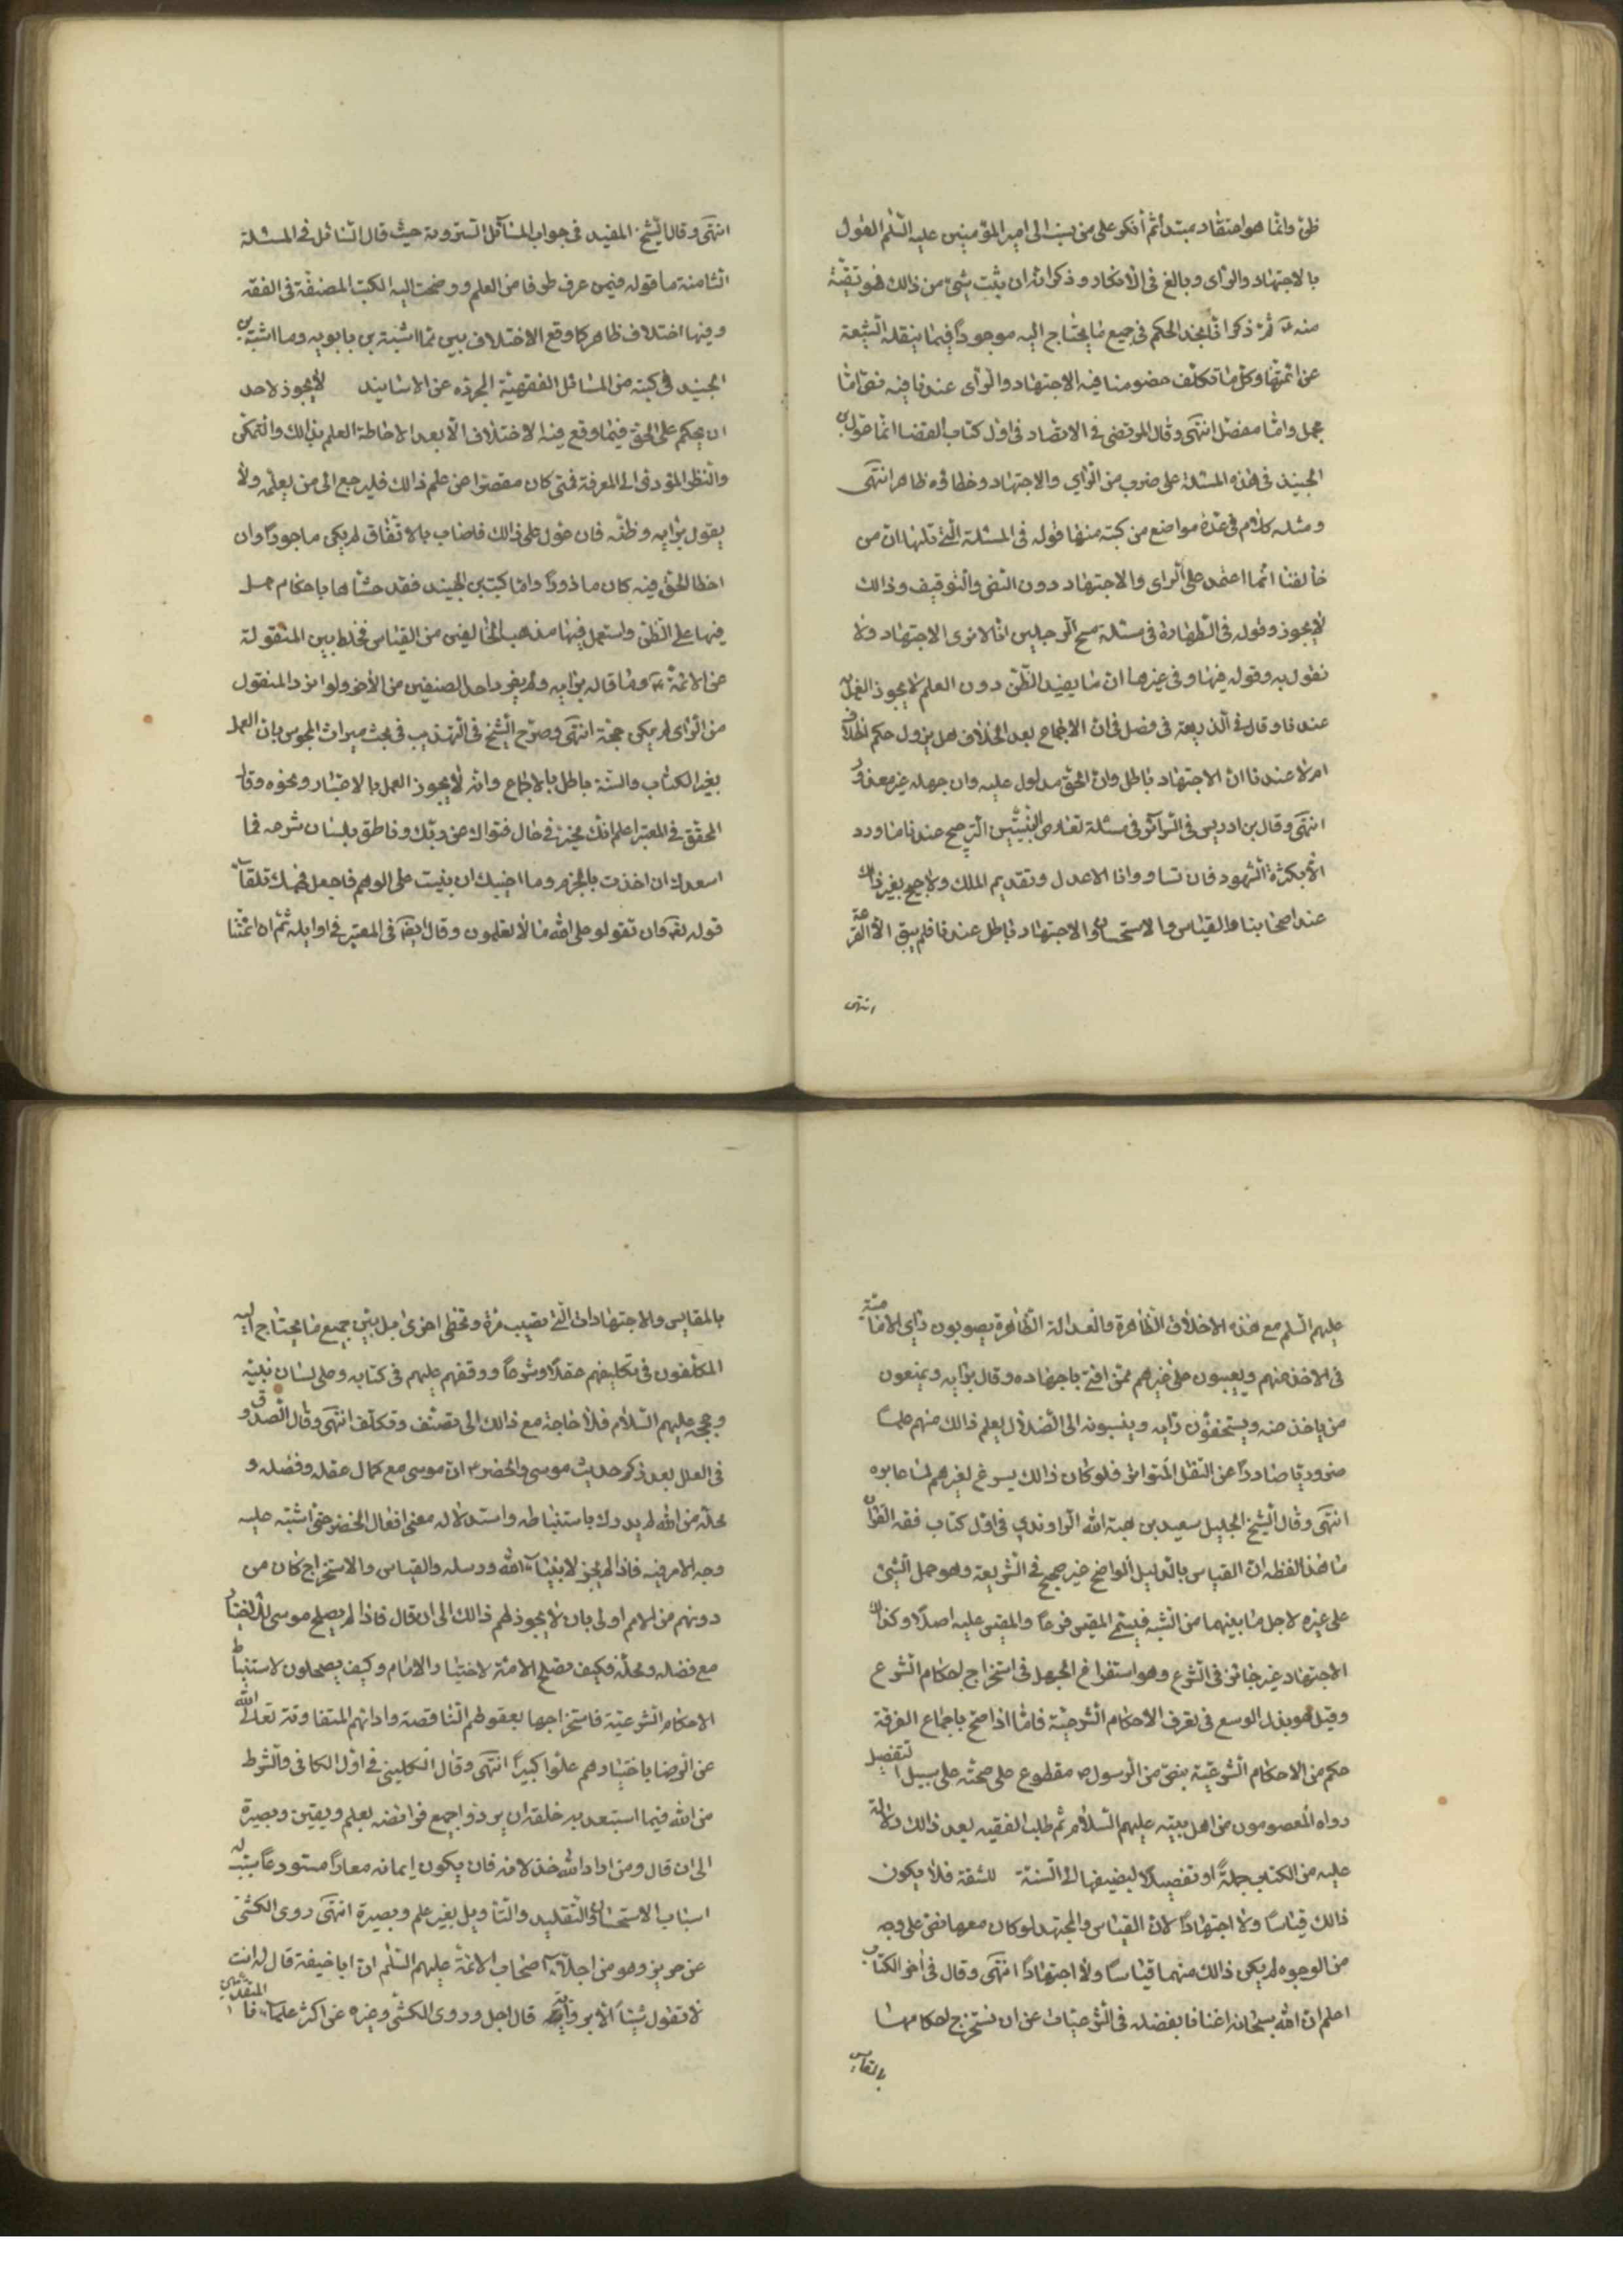 ظن وانما هو اعتقاد مبتدا ثم أنكر على من ينسب الى امير المؤمنين عليه السلم القول
بالاجتهاد والراى وبالغ فى الانكار وذكر انه ان يثبت شئ من ذالك فهو تقيّة
منه ثم ذكر انا نجد الحكم فى جميع ما يحتاج اليه موجوداً فيما ينقله الشيعة
عن ائمتها وكل ما تكلّف خصومنا فيه الاجتهاد والراى عندنا فيه نص امّا
مجمل وامّا مفصل انتهى وقال المرتضى فى الانتصار فى اول كتاب القضا انما عول بن
الجنيد فى هذه المسئلة على ضرب من الرأي والاجتهاد وخطاؤه ظاهر انتهى
ومثله كلام فى عدّة مواضع من كتبه منها قوله فى المسئلة الّتى قبلها ان من
خالفنا انما اعتمد على الراى والاجتهاد دون النص والتوقيف وذالك
لا يجوز وقوله فى الطهارة فى مسئلة مسح الرجلين انا لا نرى الاجتهاد ولا
نقول به وقوله فيها وفى غيرها ان ما يفيد الظن دون العلم لا يجوز العمل به
عندنا وقال فى الذريعة فى فصل فى ان الاجماع بعد الخلاف هل يزول حكم الخلاف
ام لا عندنا ان الاجتهاد باطل وان الحق مدلول عليه وان جهله غير معذور
انتهى وقال بن ادريس فى السرآئر فى مسئلة تعارض البيّنتين الترجيح عندنا ما ورد
الّا بكثرة الشهود فان تساووا فالاعدل وتقديم الملك ولا ترجيح بغير ذالك
عند اصحابنا والقياس والاستحسان والاجتهاد باطل عندنا فلم يبق الا القرعة
انتهى
انتهى وقال الشيخ المفيد فى جواب المسآئل السروية حيث قال السائل فى المسئلة
الثامنة ما قوله فيمن عرف طرفا من العلم ووضحت اليه الكتب المصنفة فى الفقه
وفيها اختلاف ظاهر كما وقع الاختلاف بين ما اثبته بن بابويه وما اثبته بن
الجنيد فى كتبه من المسائل الفقهيّة المجردّه عن الاسانيد لا يجوز لاحد
ان يحكم على الحق فيما وقع فيه الاختلاف الّا بعد الاحاطة العلم بذالك والتمكن
والنظر المؤدى الى المعرفة فمتى كان مقصراً عن علم ذالك فليرجع الى من يعلمه ولا
يقول برايه وظنّه فان عول على ذالك فاصاب بالاتفاق لم يكن ماجوراً وان
اخطا الحق فيه كان مازوراً واما كتب بن الجنيد فقد حشاها باحكام عمل
فيها على الظن واستعمل فيها مذهب المخالفين من القياس فخلط بين المنقولة
عن الائمة وما قاله برايه ولم يفرد احد الصنفين من الأخر ولو افرد المنقول
من الراى لم يكن حجة انتهى وصرّح الشيخ فى التهذيب فى بحث ميراث المجوس بان العمل
بغير الكتاب والسنّة باطل بالاجماع وانه لا يجوز العمل بالاعتبار ونحوه وقال
المحقق فى المعتبر اعلم انك مخبر فى حال فتواك عن ربّك وناطق بلسان شرعه فما
اسعدك ان اخذت بالجزم وما اخيبك ان بنيت على الوهم فاجعل فهمك تلقآء
قوله تع وان تقولو على الله ما لا تعلمون وقال ايضا فى المعتبر فى اوايله ثم ان ائمّتنا
عليهم السلم مع هذه الاخلاق الظاهرة والعدالة الظاهرة يصوبون راى الامامية
فى الاخذ عنهم ويعيبون على غيرهم ممّن افتى باجتهاده وقال برايه ويمنعون
من ياخذ عنه ويستخفّون رايه وينسبونه الى الضلال يعلم ذالك منهم علماً
ضروريّا صادراً عن النقل المتواتر فلو كان ذالك يسوغ لغيرهم لما عابوه
انتهى وقال الشيخ الجليل سعيد بن هبة الله الراوندي فى اول كتاب فقه القرآن
ما هذا لفظه ان القياس بالدليل الواضح غير صحيح فى الشريعة وهو حمل الشئ
على غيره لاجل ما بينهما من الشبه فيسمّى المقيس فرعاً والمقيس عليه اصلاً وكذالك
الاجتهاد غير جائز فى الشرع وهو استفراغ الجهد فى استخراج احكام الشرع
وقيل هو بذل الوسع فى تعرف الاحكام الشرعيّة فامّا اذا صح باجماع الفرقة
حكم من الاحكام الشرعيّة بنص من الرسول ص مقطوع على صحته على سبيل التفصيل
رواه المعصومون من اهل بيته عليهم السلام ثم طلب الفقيه بعد ذالك دلالة
عليه من الكتاب جملةً او تفصيلاً ليضيفها الى السنّة للشقة فلا يكون
ذالك قياساً ولا اجتهاداً لان القياس والمجتهد لو كان معها نص على وجه
من الوجوه لم يكن ذالك منهما قياساً ولا اجتهاداً انتهى وقال فى اخر الكتاب
اعلم ان الله سبحانه اغنانا بفضله فى الشرعيات عن ان نستخرج احكامها
بالمقايس
بالمقايس والاجتهادات الّتى تصيب مرة وتخطى اخرى بل بيّن جميع ما يحتاج اليه
المكلفون فى تكليفهم عقلاً وشرعاً ووقفهم عليهم فى كتابه وعلى لسان نبيّه
وحججه عليهم السلام فلا حاجة مع ذالك الى تعسّف وتكلّف انتهى وقال الصدوق
فى العلل بعد ذكر حديث موسى والخضر ان موسى مع كمال عقله وفضله و
محلّه من الله لم يدرك باستنباطه واستدلاله معنى افعال الخضر حتى اشتبه عليه
وجه الامر فيه فاذا لم يجز لانبيآء الله ورسله والقياس والاستخراج كان من
دونهم من الامم اولى بان لا يجوز لهم ذالك الى ان قال فاذا لم يصلح موسى للاختيار
مع فضله ومحلّه فكيف تصلح الامّة لاختيار الامام وكيف يصلحون لاستنباط
الاحكام الشرعيّة فاستخراجها بعقولهم الناقصة وارائهم المتفاوتة تعالى الله
عن الرضا باختيارهم علوّا كبيراً انتهى وقال الكليني فى اول الكافى والشرط
من الله فيما استعبد به خلقه ان يردوا جميع فرائضه بعلم ويقين وبصيرة
الى ان قال ومن اراد الله خذلانه فان يكون ايمانه معاراً مستودعاً سبّب له
اسباب الاستحسان والتقليد والتأويل بغير علم وبصيرة انتهى روى الكشى
عن حريز وهو من اجلّاء اصحاب الائمّة عليهم السلم ان ابا حنيفة قال له انت
لا تقول شيئاً الّا برواية قال اجل وروى الكشى وغيره عن اكثر علمآئنا المتقدّمين